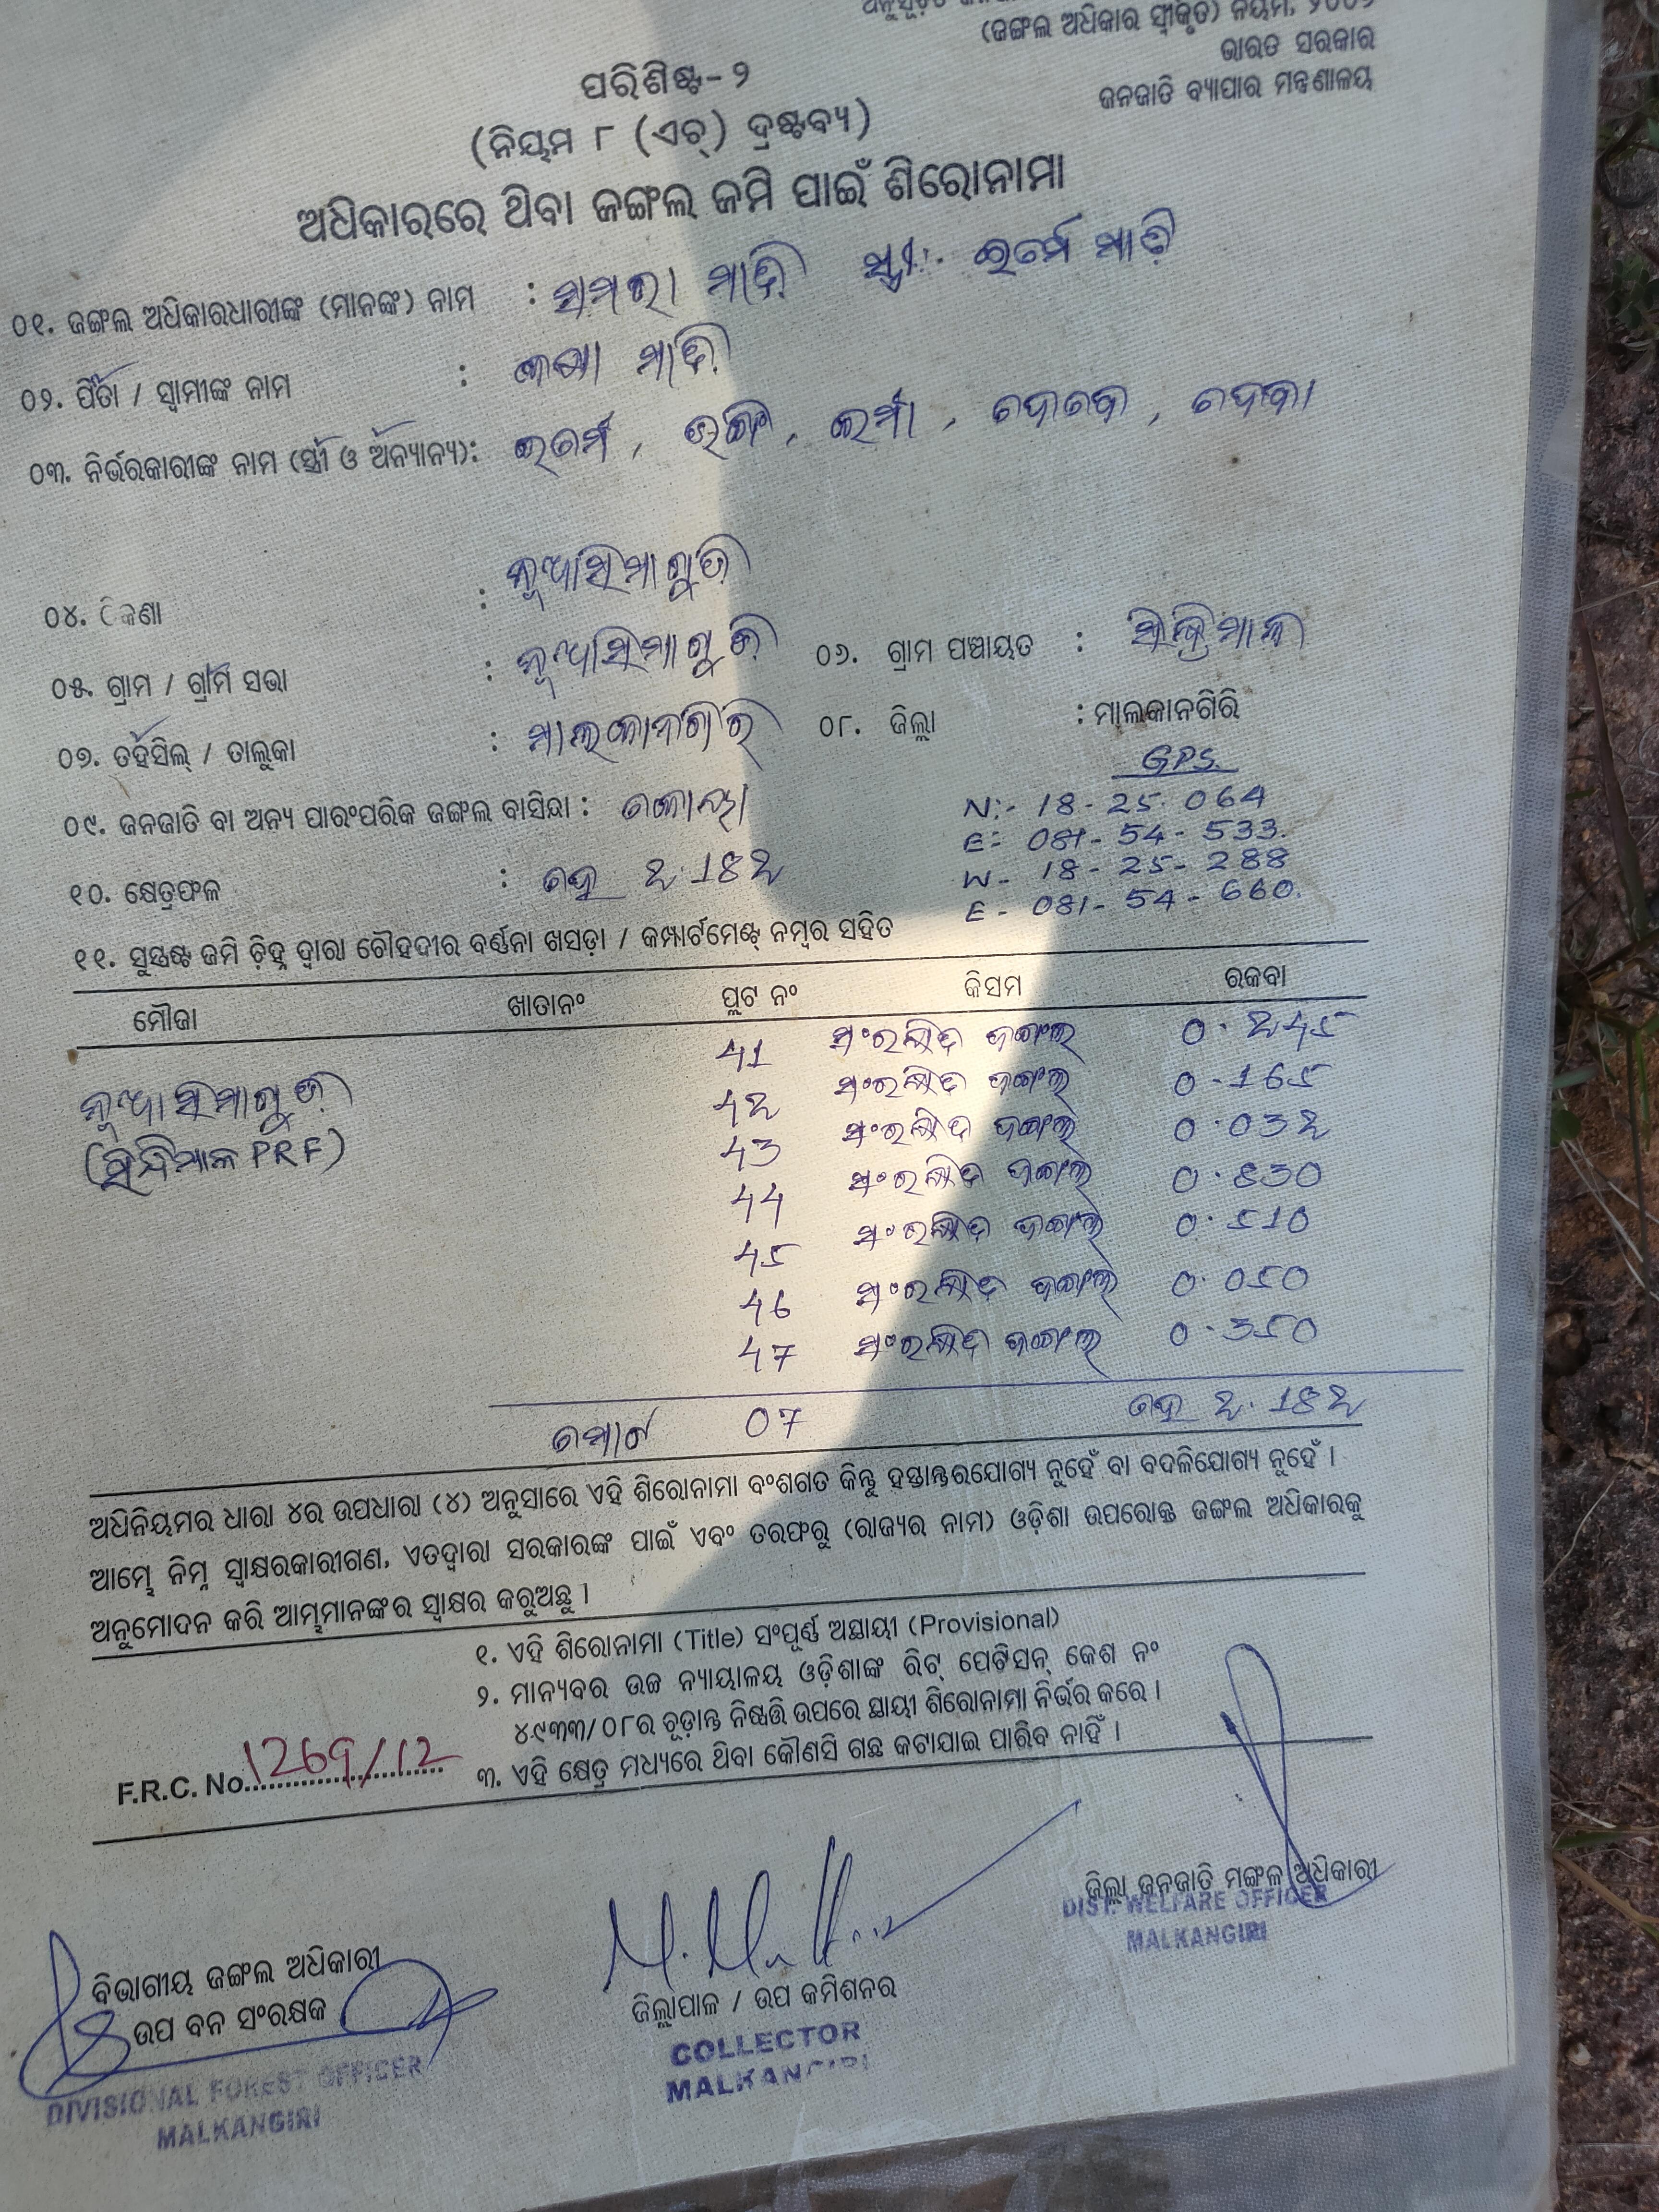 (ଜଙ୍ଗଲ ଅଧିକାର ସ୍ୱୀକୃତି) ନିୟମ, ୨୦୦୭
ଭାରତ ସରକାର
ଜନଜାତି ବ୍ୟାପାର ମନ୍ତ୍ରଣାଳୟ
ପରିଶିଷ୍ଟ-୨
(ନିୟମ ୮ (ଏଚ୍) ଦ୍ରଷ୍ଟବ୍ୟ)
ଅଧିକାରରେ ଥିବା ଜଙ୍ଗଲ ଜମି ପାଇଁ ଶିରୋନାମା
୦୧. ଜଙ୍ଗଲ ଅଧିକାରଧାରୀଙ୍କ (ମାନଙ୍କ) ନାମ : ମାଡ଼ି ସ୍ତ୍ରୀ: ମାଡ଼ି
୦୨. ପିତା / ସ୍ୱାମୀଙ୍କ ନାମ : ମାଡ଼ି
୦୩. ନିର୍ଭରକାରୀଙ୍କ ନାମ (ସ୍ତ୍ରୀ ଓ ଅନ୍ୟାନ୍ୟ):
୦୪. ଠିକଣା : ନୂଆସିମାଗୁଡ଼ି
୦୫. ଗ୍ରାମ / ଗ୍ରାମ ସଭା : ନୂଆସିମାଗୁଡ଼ି ୦୬. ଗ୍ରାମ ପଞ୍ଚାୟତ :
୦୭. ତହସିଲ୍ / ତାଲୁକା : ମାଲକାନଗିରି ୦୮. ଜିଲ୍ଲା : ମାଲକାନଗିରି
GPS.
୦୯. ଜନଜାତି ବା ଅନ୍ୟ ପାରଂପରିକ ଜଙ୍ଗଲ ବାସିନ୍ଦା : କୋୟା
N:- 18-25.064
E:- 081-54-533.
W- 18-25-288
E- 081-54-660.
୧୦. କ୍ଷେତ୍ରଫଳ : ହେ 2.182
୧୧. ସୁସ୍ପଷ୍ଟ ଜମି ଚିହ୍ନ ଦ୍ୱାରା ଚୌହଦୀର ବର୍ଣ୍ଣନା ଖସଡ଼ା / କମ୍ପାର୍ଟମେଣ୍ଟ୍ ନମ୍ବର ସହିତ
ମୌଜା ଖାତାନଂ ପ୍ଲଟ ନଂ କିସମ ରକବା
ନୂଆସିମାଗୁଡ଼ି 41 ସଂରକ୍ଷିତ ଜଙ୍ଗଲ 0.245
(ସିନ୍ଧିମାଳ PRF) 42 ସଂରକ୍ଷିତ ଜଙ୍ଗଲ 0.165
43 ସଂରକ୍ଷିତ ଜଙ୍ଗଲ 0.032
44 ସଂରକ୍ଷିତ ଜଙ୍ଗଲ 0.830
45 ସଂରକ୍ଷିତ ଜଙ୍ଗଲ 0.510
46 ସଂରକ୍ଷିତ ଜଙ୍ଗଲ 0.050
47 ସଂରକ୍ଷିତ ଜଙ୍ଗଲ 0.350
ମୋଟ 07 ହେ 2.182
ଅଧିନିୟମର ଧାରା ୪ର ଉପଧାରା (୪) ଅନୁସାରେ ଏହି ଶିରୋନାମା ବଂଶଗତ କିନ୍ତୁ ହସ୍ତାନ୍ତରଯୋଗ୍ୟ ନୁହେଁ ବା ବଦଳିଯୋଗ୍ୟ ନୁହେଁ ।
ଆମ୍ଭେ ନିମ୍ନ ସ୍ୱାକ୍ଷରକାରୀଗଣ, ଏତଦ୍ୱାରା ସରକାରଙ୍କ ପାଇଁ ଏବଂ ତରଫରୁ (ରାଜ୍ୟର ନାମ) ଓଡ଼ିଶା ଉପରୋକ୍ତ ଜଙ୍ଗଲ ଅଧିକାରକୁ
ଅନୁମୋଦନ କରି ଆମ୍ଭମାନଙ୍କର ସ୍ୱାକ୍ଷର କରୁଅଛୁ ।
୧. ଏହି ଶିରୋନାମା (Title) ସଂପୂର୍ଣ୍ଣ ଅସ୍ଥାୟୀ (Provisional)
୨. ମାନ୍ୟବର ଉଚ୍ଚ ନ୍ୟାୟାଳୟ ଓଡ଼ିଶାଙ୍କ ରିଟ୍ ପେଟିସନ୍ କେଶ ନଂ
୪୯୩୩/୦୮ର ଚୂଡ଼ାନ୍ତ ନିଷ୍ପତ୍ତି ଉପରେ ସ୍ଥାୟୀ ଶିରୋନାମା ନିର୍ଭର କରେ ।
୩. ଏହି କ୍ଷେତ୍ର ମଧ୍ୟରେ ଥିବା କୌଣସି ଗଛ କଟାଯାଇ ପାରିବ ନାହିଁ ।
F.R.C. No. 1269/12
ଜିଲ୍ଲା ଜନଜାତି ମଙ୍ଗଳ ଅଧିକାରୀ
DIST. WELFARE OFFICER
MALKANGIRI
ବିଭାଗୀୟ ଜଙ୍ଗଲ ଅଧିକାରୀ
ଉପ ବନ ସଂରକ୍ଷକ
DIVISIONAL FOREST OFFICER
MALKANGIRI
ଜିଲ୍ଲାପାଳ / ଉପ କମିଶନର
COLLECTOR
MALKANGIRI